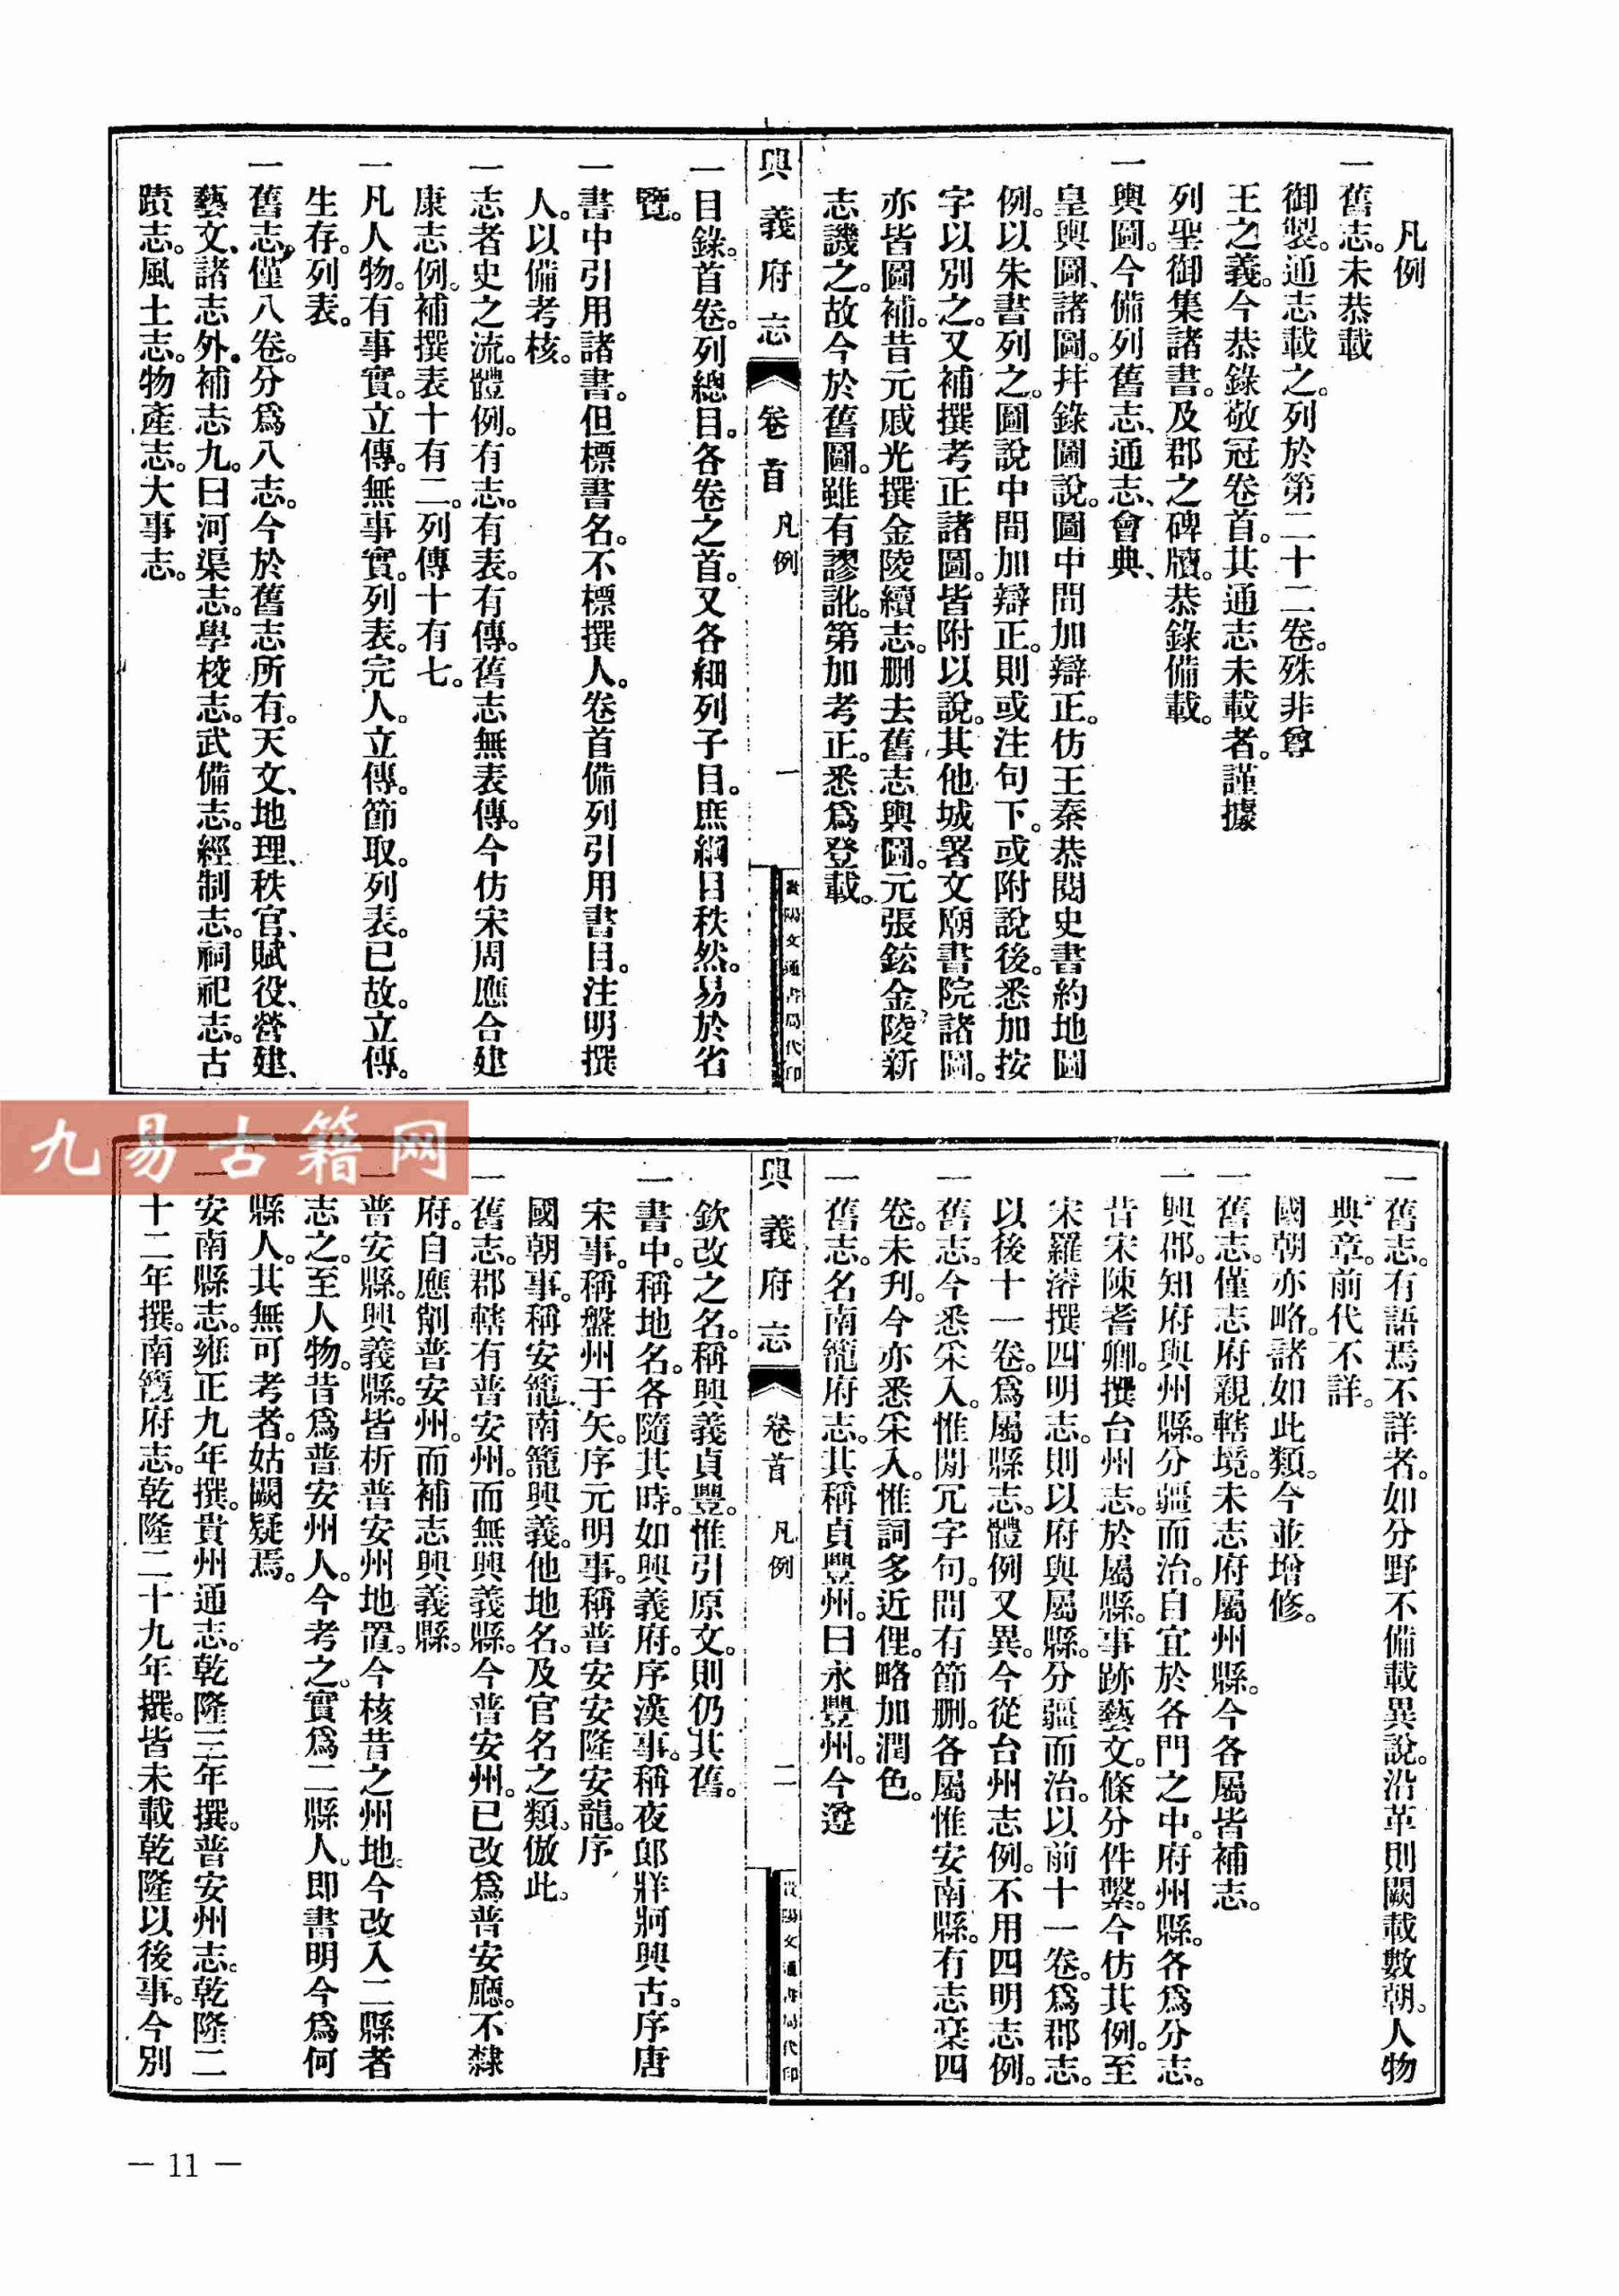 凡例
一舊志。未恭載
御製。通志載之。列於第二十二卷。殊非尊
王之義。今恭錄敬冠卷首。其通志未載者。謹據
列聖御集諸書。及郡之碑牘。恭錄備載。
一輿圖。今備列舊志、通志、會典、
皇輿圖、諸圖。幷錄圖說。圖中間加辯正。仿王秦恭閱史書約地圖
例。以朱書列之。圖說中間加辯正。則或注句下。或附說後。悉加按
字以別之。又補撰考正諸圖。皆附以說。其他城署文廟書院諸圖。
亦皆圖補。昔元戚光撰金陵續志。刪去舊志輿圖。元張鉉金陵新
志譏之。故今於舊圖。雖有謬訛。第加考正。悉爲登載。
興義府志 卷首 凡例 一 貴陽文通書局代印
一目錄。首卷。列總目。各卷之首。又各細列子目。庶綱目秩然。易於省
覽。
一書中引用諸書。但標書名。不標撰人。卷首備列引用書目。注明撰
人。以備考核。
一志者史之流。體例。有志。有表。有傳。舊志無表傳。今仿宋周應合建
康志例。補撰表十有二。列傳十有七。
一凡人物。有事實。立傳。無事實。列表。完人。立傳。節取。列表。已故。立傳。
生存。列表。
一舊志。僅八卷。分爲八志。今於舊志所有。天文、地理、秩官、賦役、營建、
藝文、諸志外。補志九。曰河渠志。學校志。武備志。經制志。祠祀志。古
蹟志。風土志。物產志。大事志。
一舊志。有語焉不詳者。如分野不備載異說。沿革則闕載數朝。人物
典章。前代不詳。
國朝亦略。諸如此類。今並增修。
一舊志。僅志府親轄境。未志府屬州縣。今各屬皆補志。
一興郡。知府與州縣。分疆而治。自宜於各門之中。府州縣。各爲分志。
昔宋陳耆卿。撰台州志。於屬縣。事跡藝文。條分件繫。今仿其例。至
宋羅濬撰四明志。則以府與屬縣。分疆而治。以前十一卷。爲郡志。
以後十一卷。爲屬縣志。體例又異。今從台州志例。不用四明志例。
一舊志。今悉采入。惟閒冗字句。間有節刪。各屬惟安南縣。有志稾四
卷。未刋。今亦悉采入。惟詞多近俚。略加潤色。
一舊志。名南籠府志。其稱貞豐州。曰永豐州。今遵
興義府志 卷首 凡例 二 貴陽文通書局代印
欽改之名。稱興義貞豐。惟引原文。則仍其舊。
一書中。稱地名。各隨其時。如興義府。序漢事。稱夜郎牂牁興古。序唐
宋事。稱盤州于矢。序元明事。稱普安安隆安龍。序
國朝事。稱安籠南籠興義。他地名。及官名之類。倣此。
一舊志。郡轄有普安州。而無興義縣。今普安州。已改爲普安廳。不隸
府。自應削普安州。而補志興義縣。
一普安縣。興義縣。皆析普安州地置。今核昔之州地、今改入二縣者
志之。至人物。昔爲普安州人。今考之。實爲二縣人。即書明今爲何
縣人。其無可考者。姑闕疑焉。
一安南縣志。雍正九年撰。貴州通志。乾隆三年撰。普安州志。乾隆二
十二年撰。南籠府志。乾隆二十九年撰。皆未載乾隆以後事。今別
九易古籍网
— 11 —